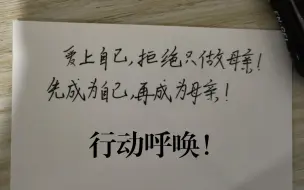 爱上自己，拒绝只做母亲！
先成为自己，再成为母亲！
行动呼唤！